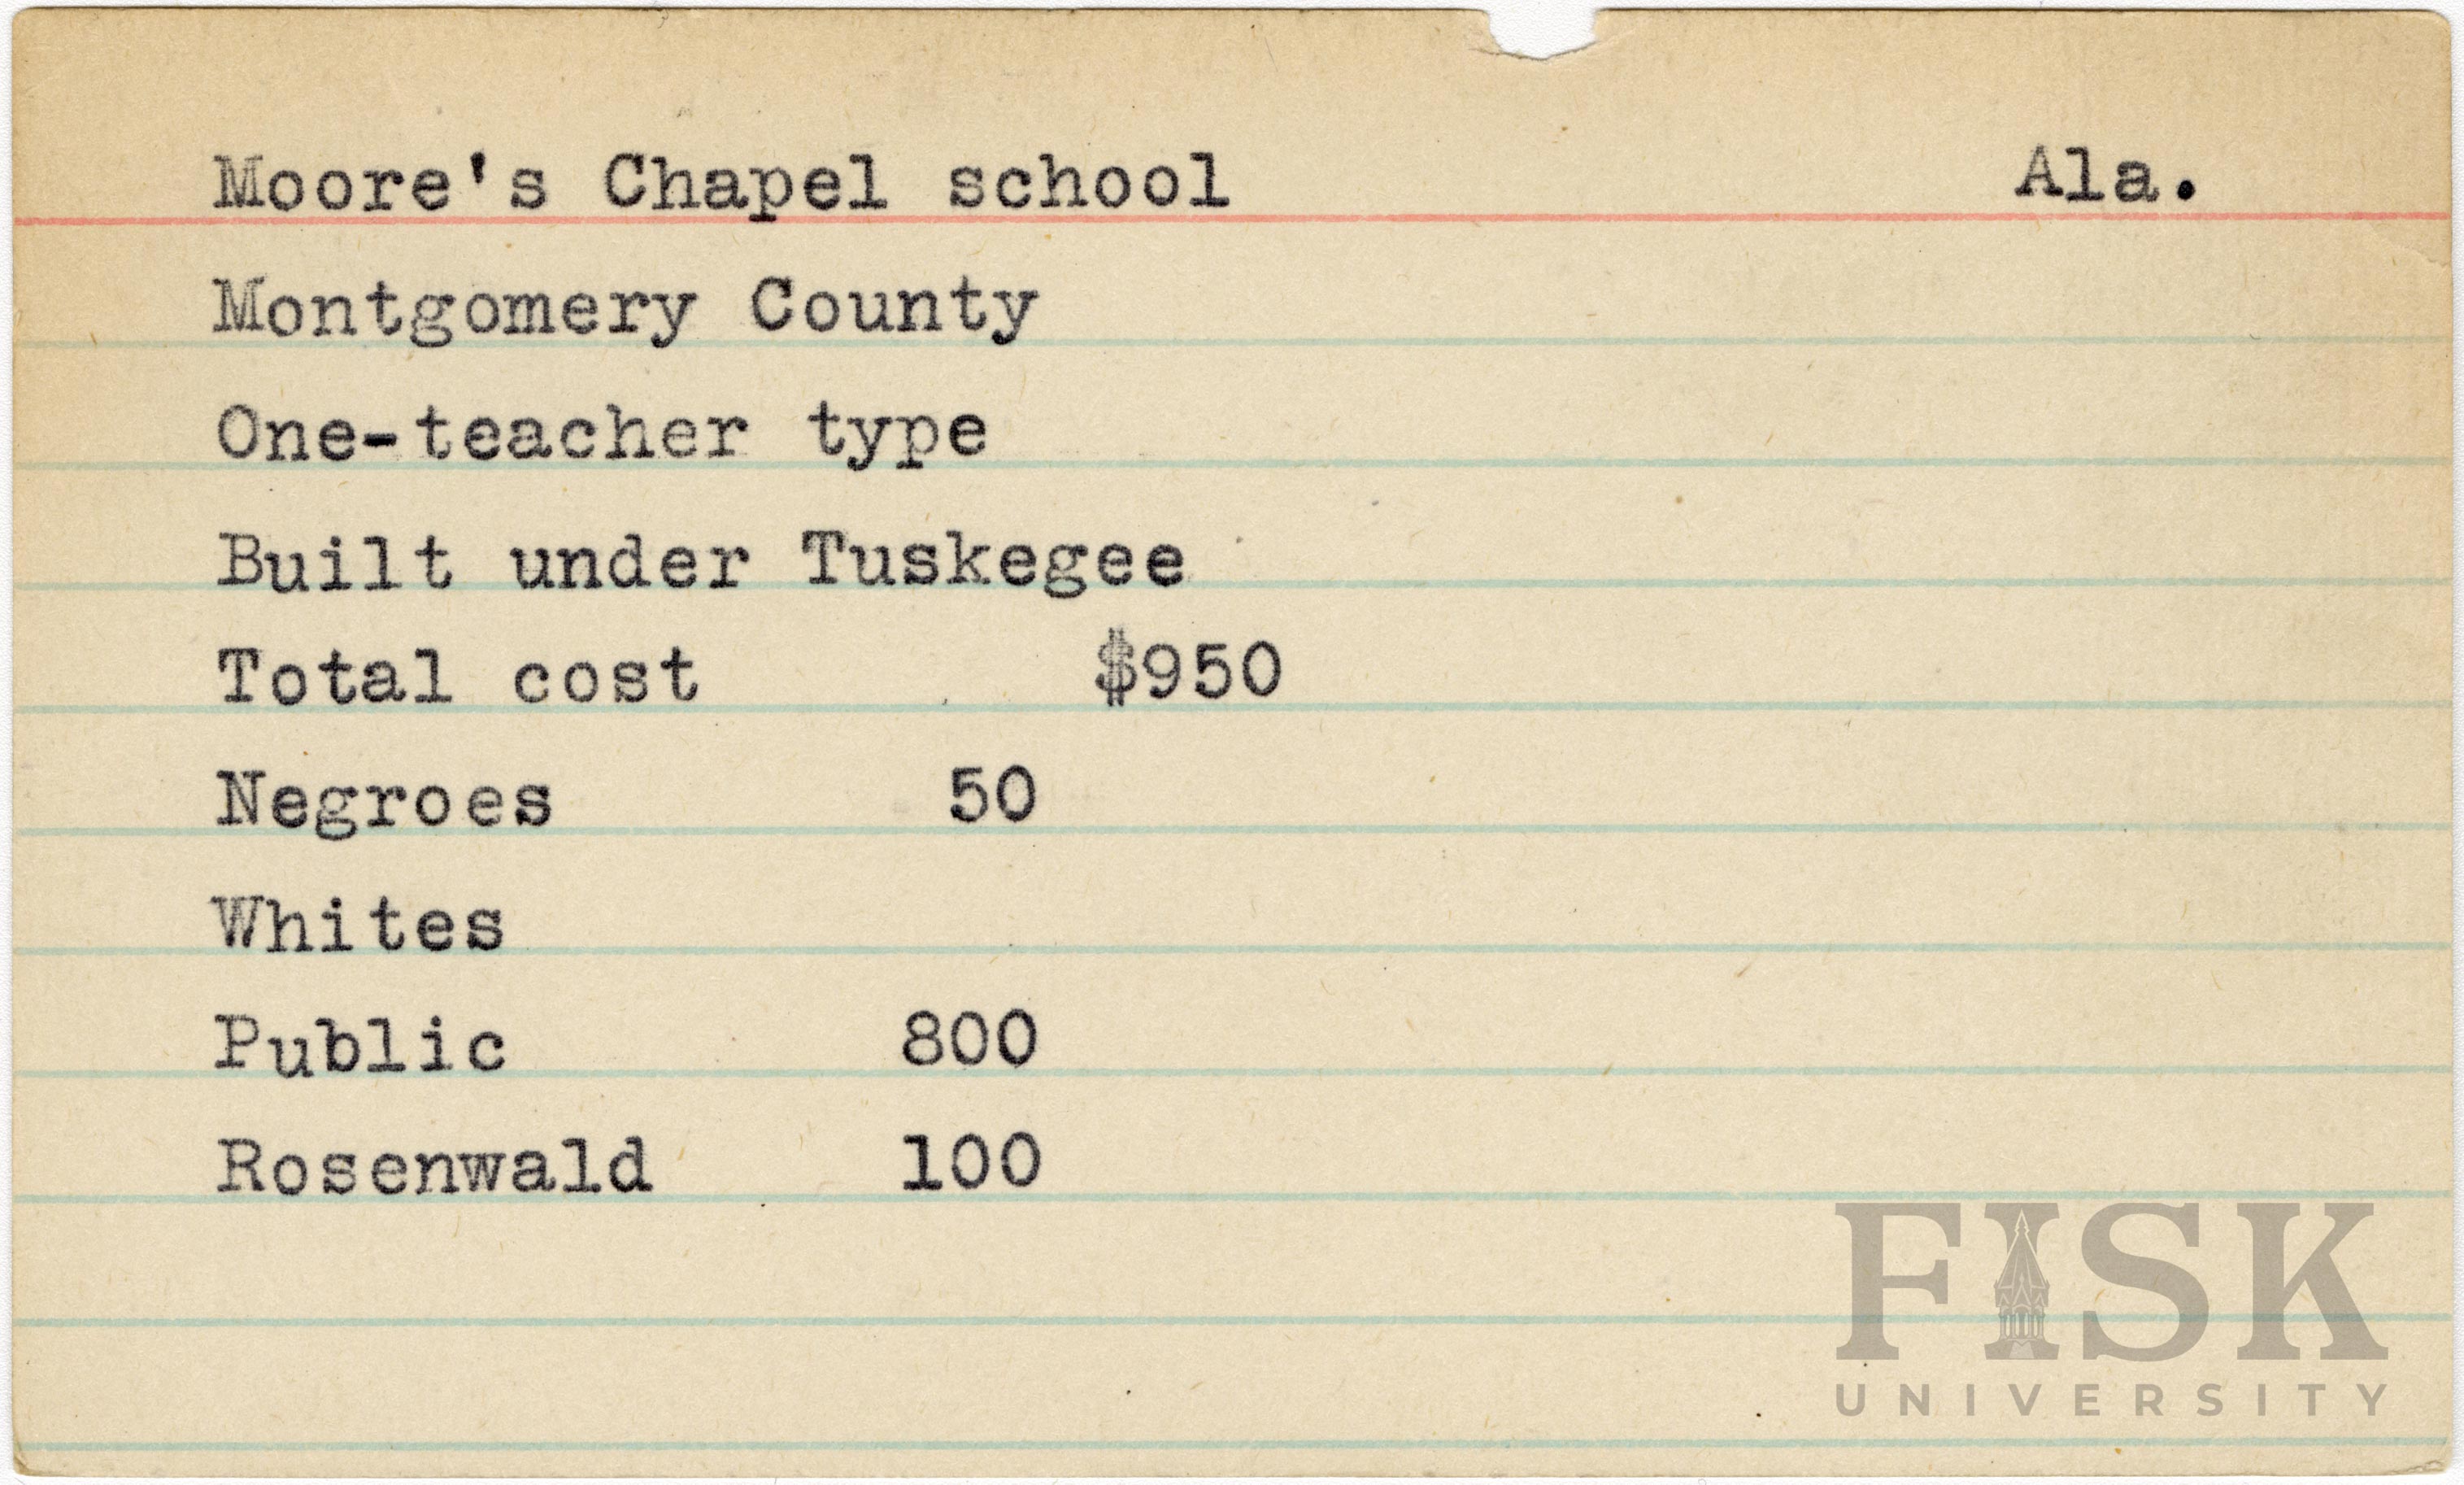 Moore's Chapel school Ala.
Montgomery County
One-teacher type
Built under Tuskegee
Total cost $950
Negroes 50
Whites
Public 800
Rosenwald 100
FISK
UNIVERSITY